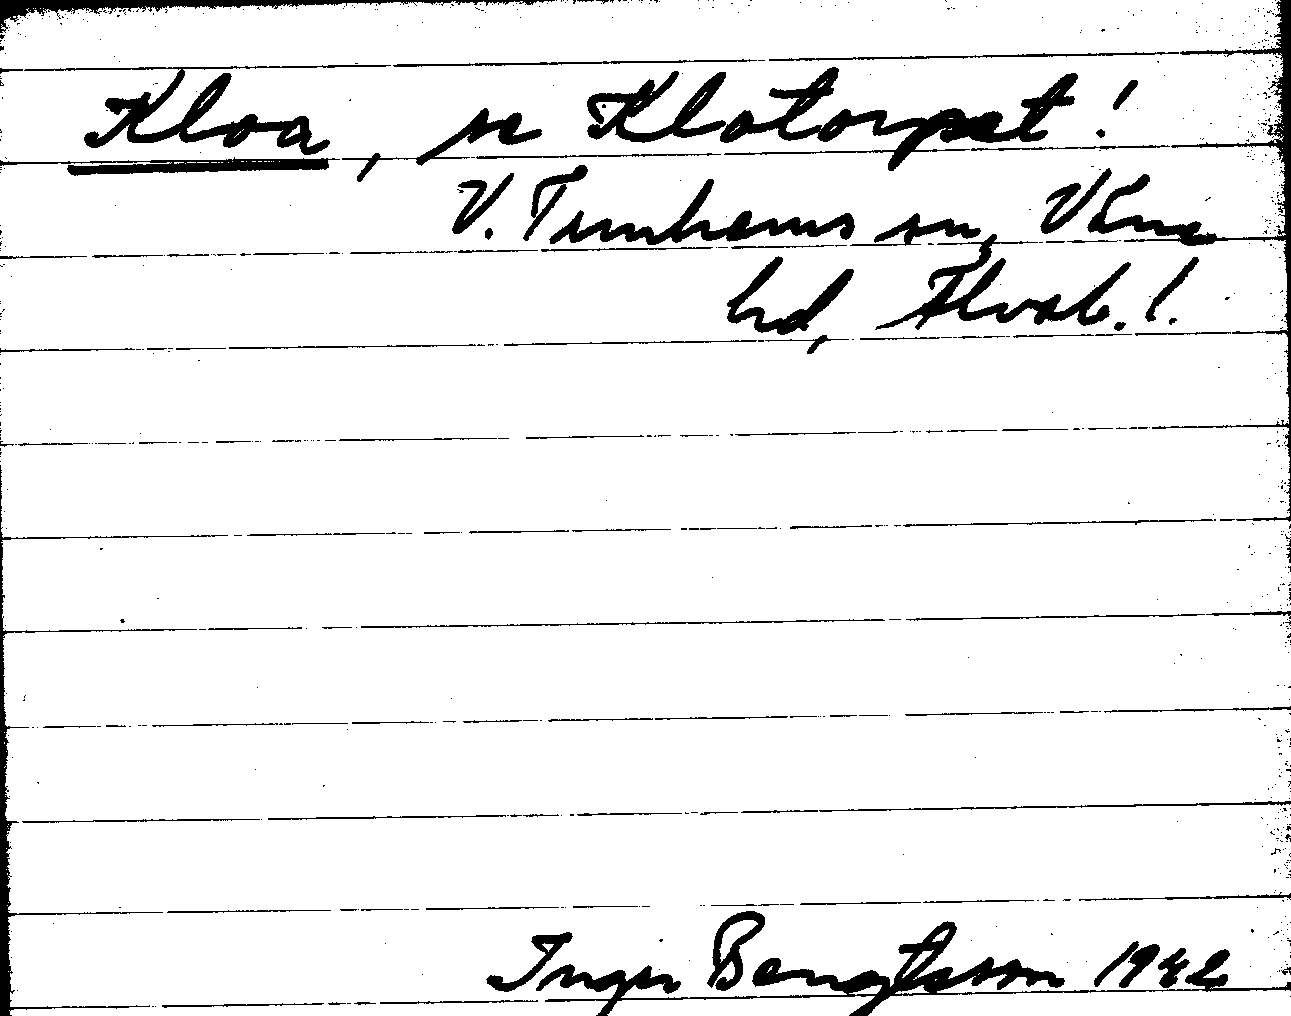 Kloa, se Klotorpet!
V. Tunhems sn, Väne
hd, Älvsb. l.
Inger Bengtsson 1942